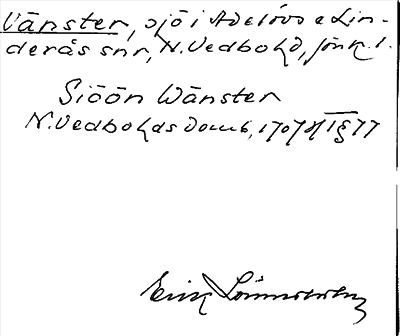 Vänster, sjö i Adelövs o Lin-
derås snr, N. Vedbo hd, Jönk. l.
Siöön Wänster
N. Vedbo hds Domb, 1707 8/ IS 77
Erik